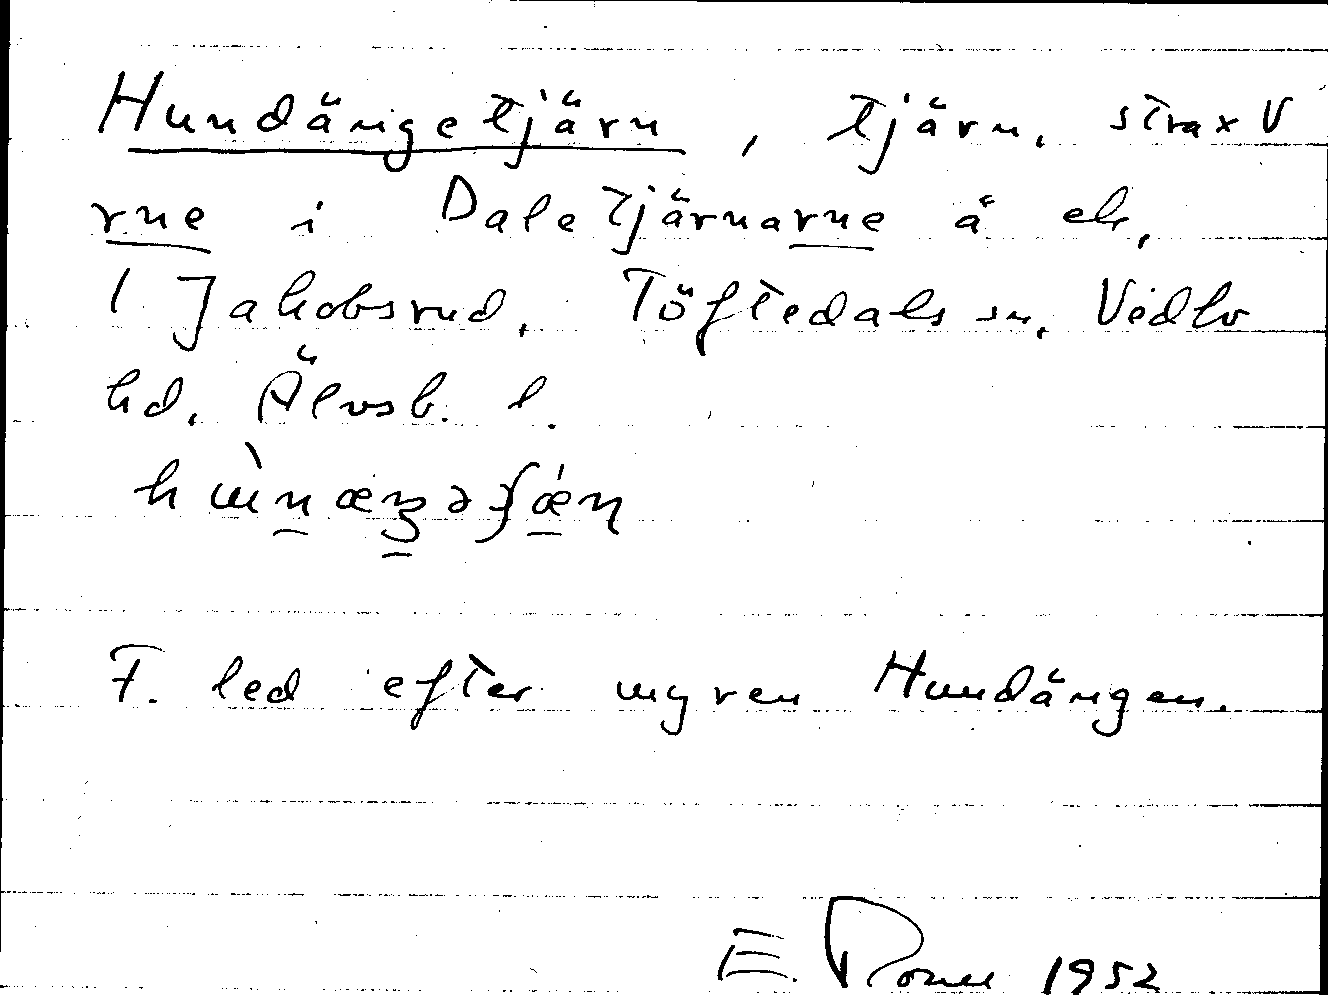 Hundängetjärn, tjärn, strax V
rne i Daletjärnarne å ek,
l Jakobsrud, Töftedals sn, Vedbo
hd. Älvsb. l.
F. led efter myren Hundängen.
E. 1952